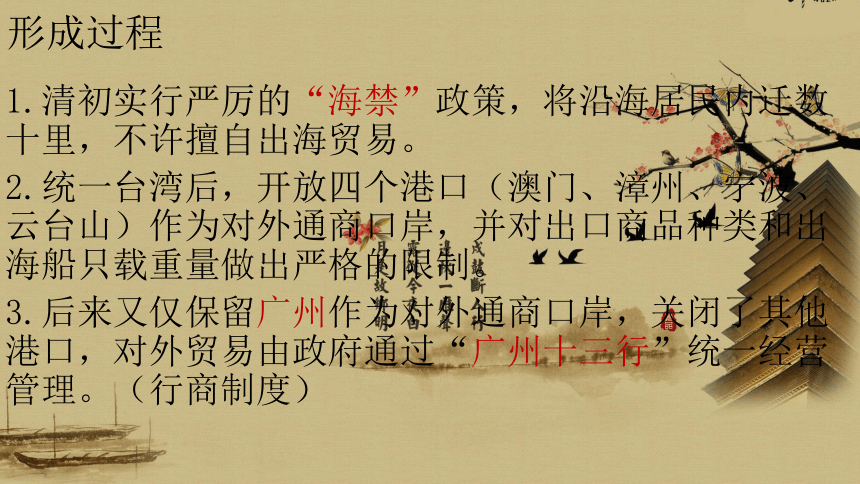 形成过程
1.清初实行严厉的“海禁”政策，将沿海居民内迁数
十里，不许擅自出海贸易。
2.统一台湾后，开放四个港口（澳门、漳州、宁波、
云台山）作为对外通商口岸，并对出口商品种类和出
海船只载重量做出严格的限制。
3.后来又仅保留广州作为对外通商口岸，关闭了其他
港口，对外贸易由政府通过“广州十三行”统一经营
管理。（行商制度）